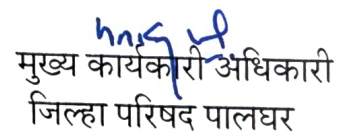 मुख्य कार्यकारी अधिकारी
जिल्हा परिषद पालघर